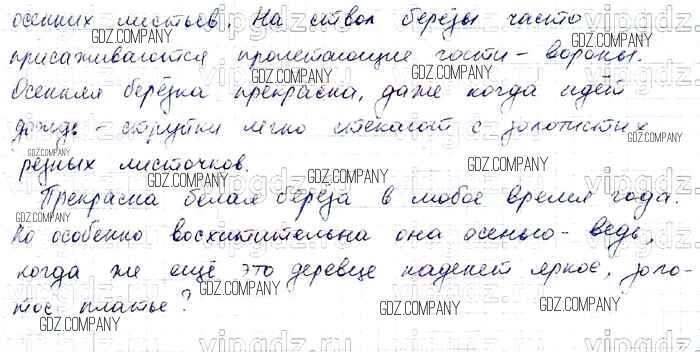 осенних листьев. На ствол берёзы часто
присаживаются пролетающие гости - вороны.
Осенняя берёзка прекрасна, даже когда идёт
дождь - струйки легко стекают с золотистых
резных листочков.
Прекрасна белая берёза в любое время года.
Но особенно восхитительна она осенью - ведь,
когда же ещё это деревце наденет яркое, золо-
тое платье?
GDZ.COMPANY
GDZ.COMPANY
GDZ.COMPANY
GDZ.COMPANY
GDZ.COMPANY
GDZ.COMPANY
GDZ.COMPANY
GDZ.COMPANY
GDZ.COMPANY
GDZ.COMPANY
GDZ.COMPANY
GDZ.COMPANY
GDZ.COMPANY
GDZ.COMPANY
vipgdz.ru
vipgdz.ru
vipgdz.ru